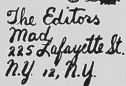 The Editors
Mad
225 Lafayette St.
N.Y. 12, N.Y.